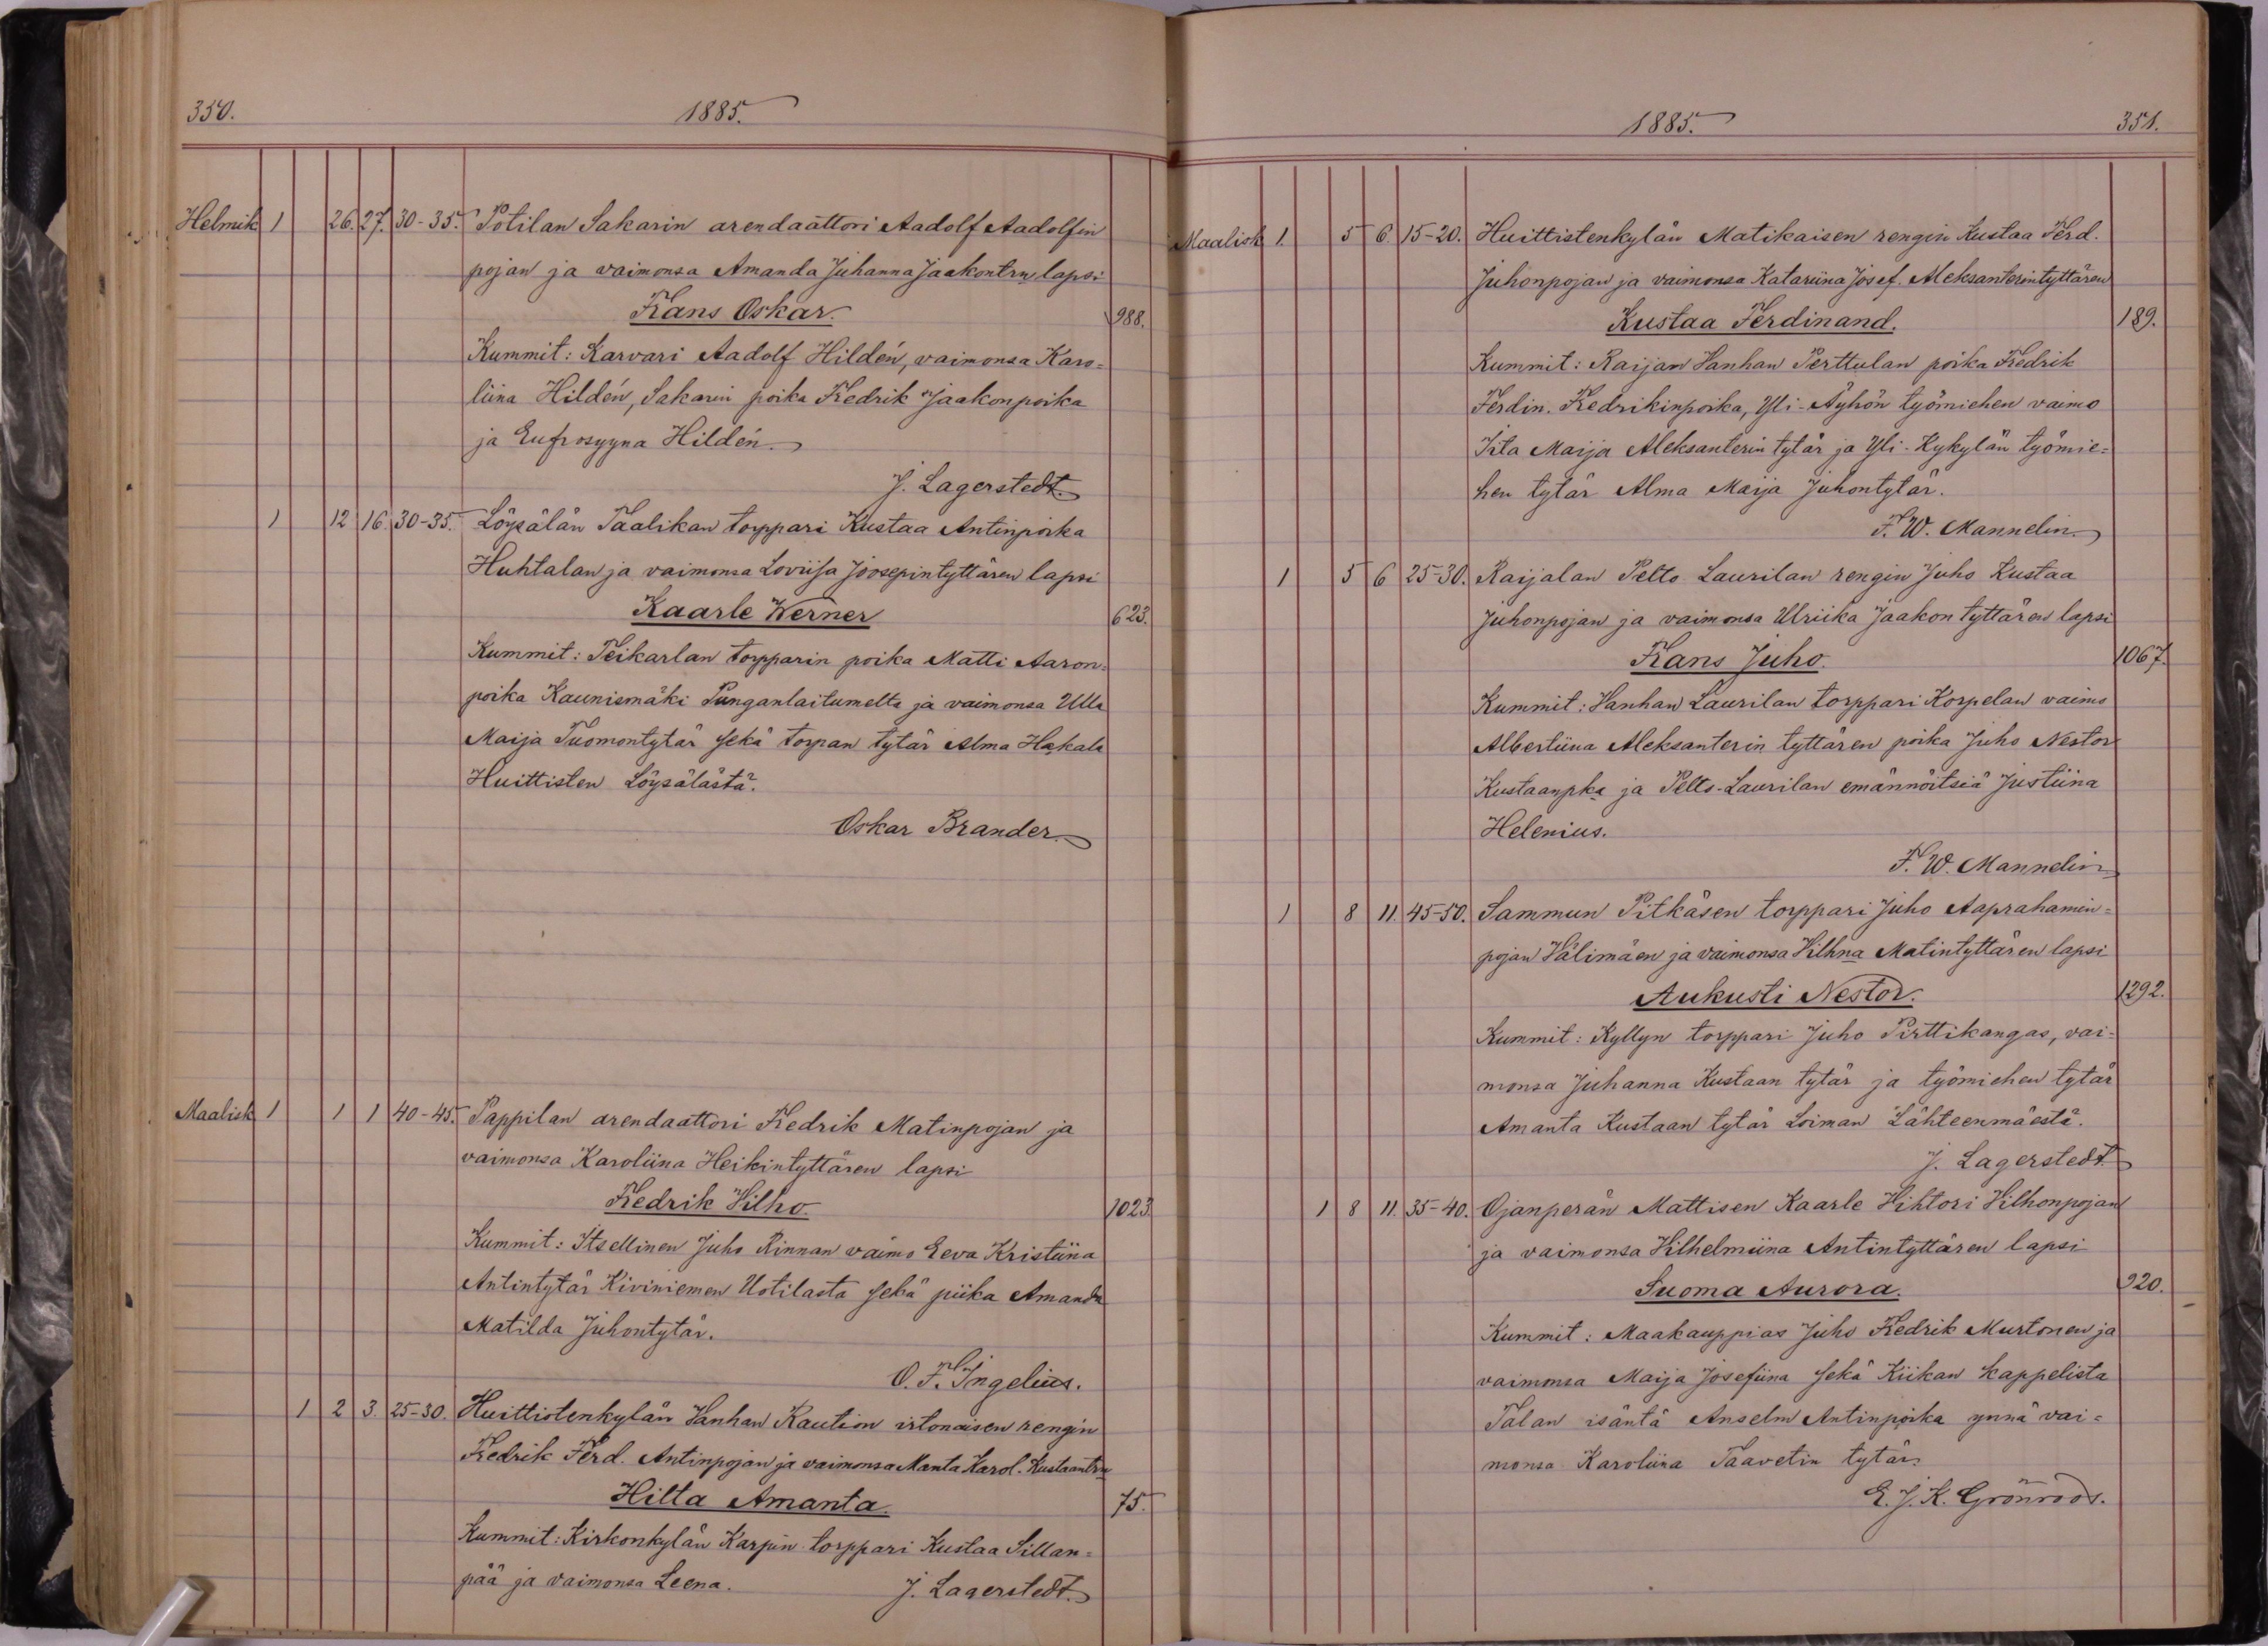 350. 1885.
Helmik 1 26. 27. 30-35. Potilan Sakarin arendaattori Aadolf Aadolfin
pojan ja vaimonsa Amanda Juhanna Jaakontrn lapsi
Frans Oskar. 988.
Kummit: Karvari Aadolf Hildén, vaimonsa Karo=
liina Hildén, Sakarin poika Fredrik Jaakonpoika
ja Eufrosyyna Hildén.
J. Lagerstedt.
1 12 16. 30-35. Löysälän Taalikan torppari Kustaa Antinpoika
Huhtalan ja vaimonsa Loviisa Joosepintyttären lapsi
Kaarle Werner 623.
Kummit: Teikarlan torpparin poika Matti Aaron=
poika Kaunismäki Punganlaitumelta ja vaimonsa Ulla
Maija Tuomontytär sekä torpan tytär Alma Hakala
Huittisten Löysälästä.
Oskar Brander.
Maalisk 1 1 1 40-45. Pappilan arendaattori Fredrik Matinpojan ja
vaimonsa Karoliina Heikintyttären lapsi
Fredrik Vilho. 1023.
Kummit: Itsellinen Juho Rinnan vaimo Eeva Kristiina
Antintytär Kiviniemen Uotilasta sekä piika Amanda
Matilda Juhontytär.
O. F. Ingelius.
1 2 3. 25-30. Huittistenkylän Vanhan Raution irtonaisen rengin
Fredrik Ferd. Antinpojan ja vaimonsa Manta Karol. Kustaantrn
Hilta Amanta. 75.
Kummit: Kirkonkylän Karpin torppari Kustaa Sillan=
pää ja vaimonsa Leena. J. Lagerstedt.
1885. 351.
Maalisk 1. 5 6. 15-20. Huittistenkylän Matikaisen rengin Kustaa Ferd.
Juhonpojan ja vaimonsa Katariina Josef. Aleksanterintyttären
Kustaa Ferdinand. 189.
Kummit: Raijan Vanhan Perttulan poika Fredrik
Ferdin. Fredrikinpoika, Yli-Äyhön työmiehen vaimo
Iita Maija Aleksanterin tytär ja Yli-Kykylän työmie=
hen tytär Alma Maija Juhontytär.
F. W. Mannelin.
1 5 6 25-30. Raijalan Pelto Laurilan rengin Juho Kustaa
Juhonpojan ja vaimonsa Ulriika Jaakon tyttären lapsi
Frans Juho. 1067.
Kummit: Vanhan Laurilan torppari Korpelan vaimo
Albertiina Aleksanterin tyttären poika Juho Nestor
Kustaanpka ja Pelto-Laurilan emännöitsiä Justiina
Helenius.
F. W. Mannelin
1 8 11. 45-50. Sammun Pitkäsen torppari Juho Aaprahamin=
pojan Välimäen ja vaimonsa Vilhna Matintyttären lapsi
Aukusti Nestor. 1292.
Kummit: Kyllyn torppari Juho Pirttikangas, vai=
monsa Juhanna Kustaan tytär ja työmiehen tytär
Amanta Kustaan tytär Loiman Lähteenmäestä.
J. Lagerstedt.
1 8 11. 35-40. Ojanperän Mattisen Kaarle Vihtori Vilhonpojan
ja vaimonsa Vilhelmiina Antintyttären lapsi
Suoma Aurora. 920.
Kummit: Maakauppias Juho Fredrik Murtonen ja
vaimonsa Maija Josefiina sekä Kiikan kappelista
Talan isäntä Anselm Antinpoika ynnä vai=
monsa Karoliina Taavetin tytär.
E. J. K. Grönroos.